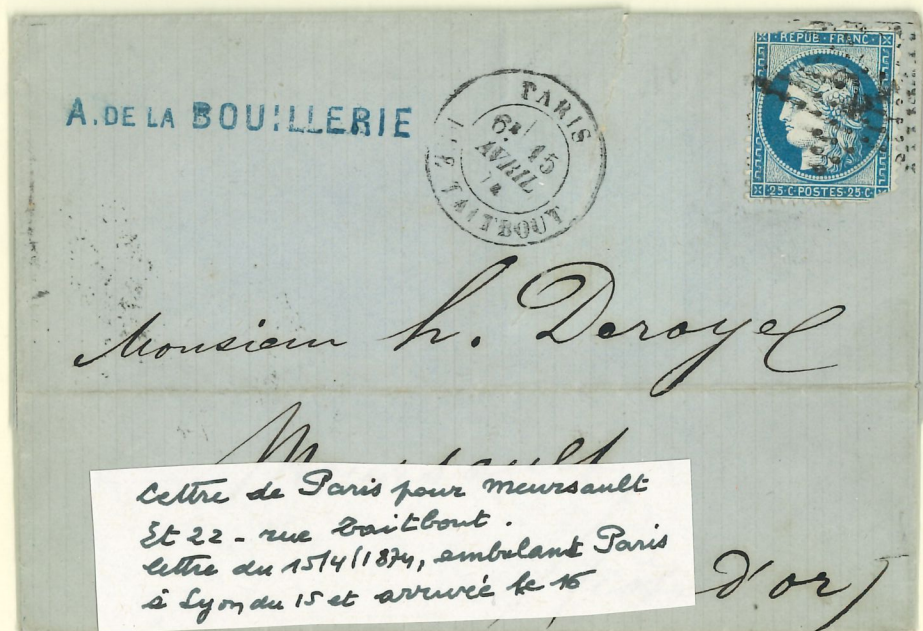 REPUB · FRANC
A. DE LA BOUILLERIE
PARIS
6E
15
AVRIL
74
R. TAITBOUT
25 · C · POSTES · 25 · C
Monsieur h. Deroye
Lettre de Paris pour Meursault
Et 22 - rue Taitbout.
lettre du 15/4/1874, ambulant Paris
à Lyon du 15 et arrivée le 16
d'or